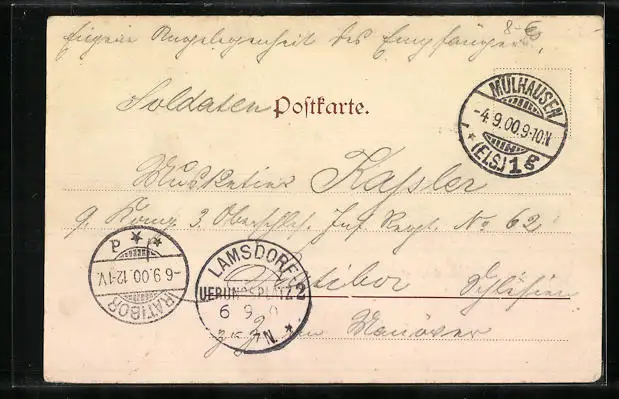 8-€
Eigene Angelegenheit des Empfängers.
Soldaten Postkarte.
MÜLHAUSEN
-4.9.00.9-10N
* (ELS.) 1g
Musketier Kassler
9. Komp 3. Oberschles. Inf. Regt. No 62
P **
-6.9.00.12-1V.
RATIBOR
LAMSDORF
UEBUNGSPLATZ 2
6 9
N. *
Ratibor Schlesien
Manöver